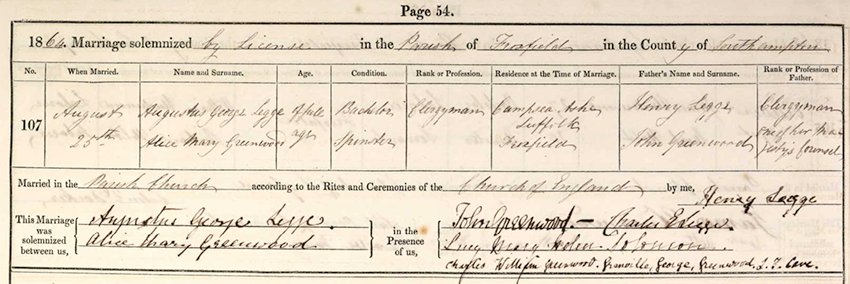 Page 54.
1864. Marriage solemnized by License in the Parish of Froxfield in the County of Southampton
No. When Married. Name and Surname. Age. Condition. Rank or Profession. Residence at the Time of Marriage. Father's Name and Surname. Rank or Profession of Father.
107 August 25th Augustus George Legge of full age Bachelor Clergyman Campsea Ashe Suffolk Henry Legge Clergyman
Alice Mary Greenwood Spinster Froxfield John Greenwood one of her Majesty's Counsel
Married in the Parish Church according to the Rites and Ceremonies of the Church of England by me, Henry Legge
This Marriage was solemnized between us, Augustus George Legge. in the Presence of us, John Greenwood — Charles E Legge
Alice Mary Greenwood. Lucy Mary Solomon.
Charles William Greenwood. Granville, George, Greenwood. L. T. Cave.